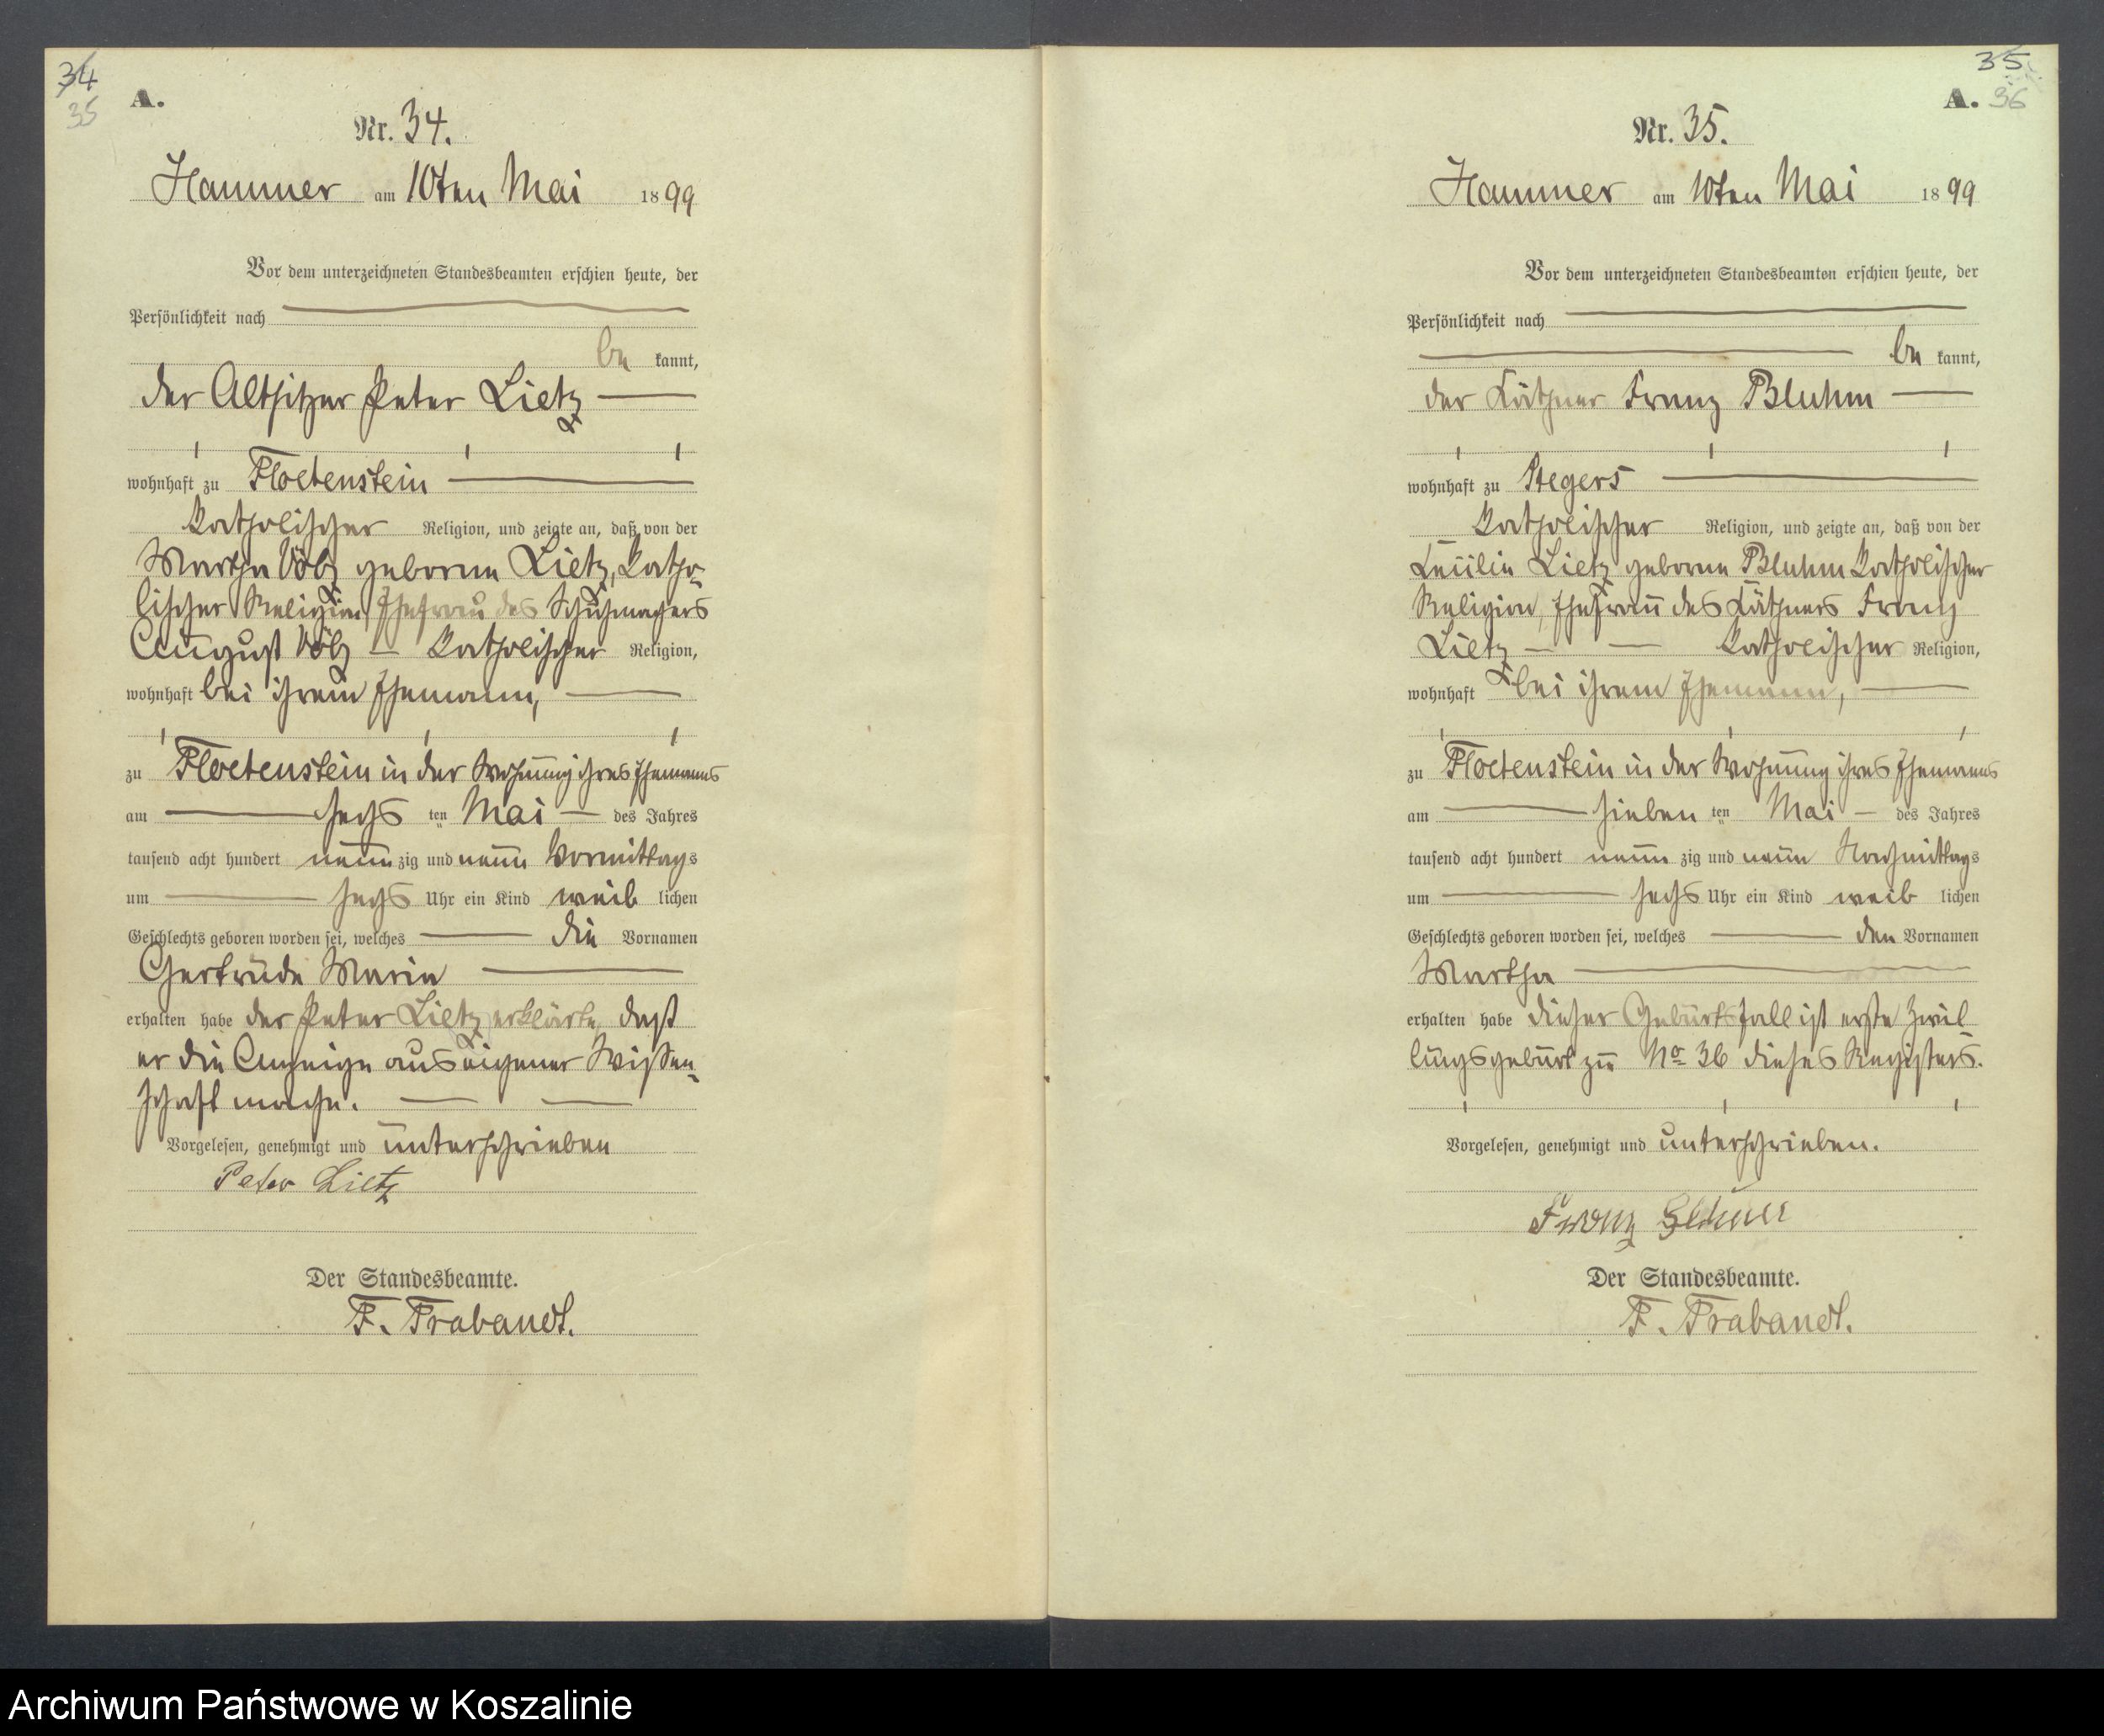 34
35
A.
Nr. 34.
Hammer am 10ten Mai 1899
Vor dem unterzeichneten Standesbeamten erschien heute, der
Persönlichkeit nach
be kannt,
der Altsitzer Peter Lietz
wohnhaft zu Floetenstein
katholischer Religion, und zeigte an, daß von der
Martha Völz geborne Lietz, katho-
lischer Religion, Ehefrau des Schuhmachers
August Völz katholischer Religion,
wohnhaft bei ihrem Ehemann,
zu Floetenstein in der Wohnung ihres Ehemanns
am sechs ten Mai des Jahres
tausend acht hundert neun zig und neun Vormittags
um sechs Uhr ein Kind weib lichen
Geschlechts geboren worden sei, welches die Vornamen
Gertrude Maria
erhalten habe der Peter Lietz erklärte, daß
er die Anzeige aus eigener Wissen-
schaft mache.
Vorgelesen, genehmigt und unterschrieben
Peter Lietz
Der Standesbeamte.
F. Trabandt.
35
A. 36
Nr. 35.
Hammer am 10ten Mai 1899
Vor dem unterzeichneten Standesbeamten erschien heute, der
Persönlichkeit nach
be kannt,
der Käthner Franz Bluhm
wohnhaft zu Stegers
katholischer Religion, und zeigte an, daß von der
Lietz geborne Bluhm katholischer
Religion, Ehefrau des Käthners Franz
Lietz katholischer Religion,
wohnhaft bei ihrem Ehemann,
zu Floetenstein in der Wohnung ihres Ehemanns
am sieben ten Mai des Jahres
tausend acht hundert neun zig und neun Nachmittags
um sechs Uhr ein Kind weib lichen
Geschlechts geboren worden sei, welches den Vornamen
Martha
erhalten habe dieser Geburtsfall ist erste Zwil-
lingsgeburt zu No 36 dieses Registers.
Vorgelesen, genehmigt und unterschrieben.
Franz
Der Standesbeamte.
F. Trabandt.
Archiwum Państwowe w Koszalinie